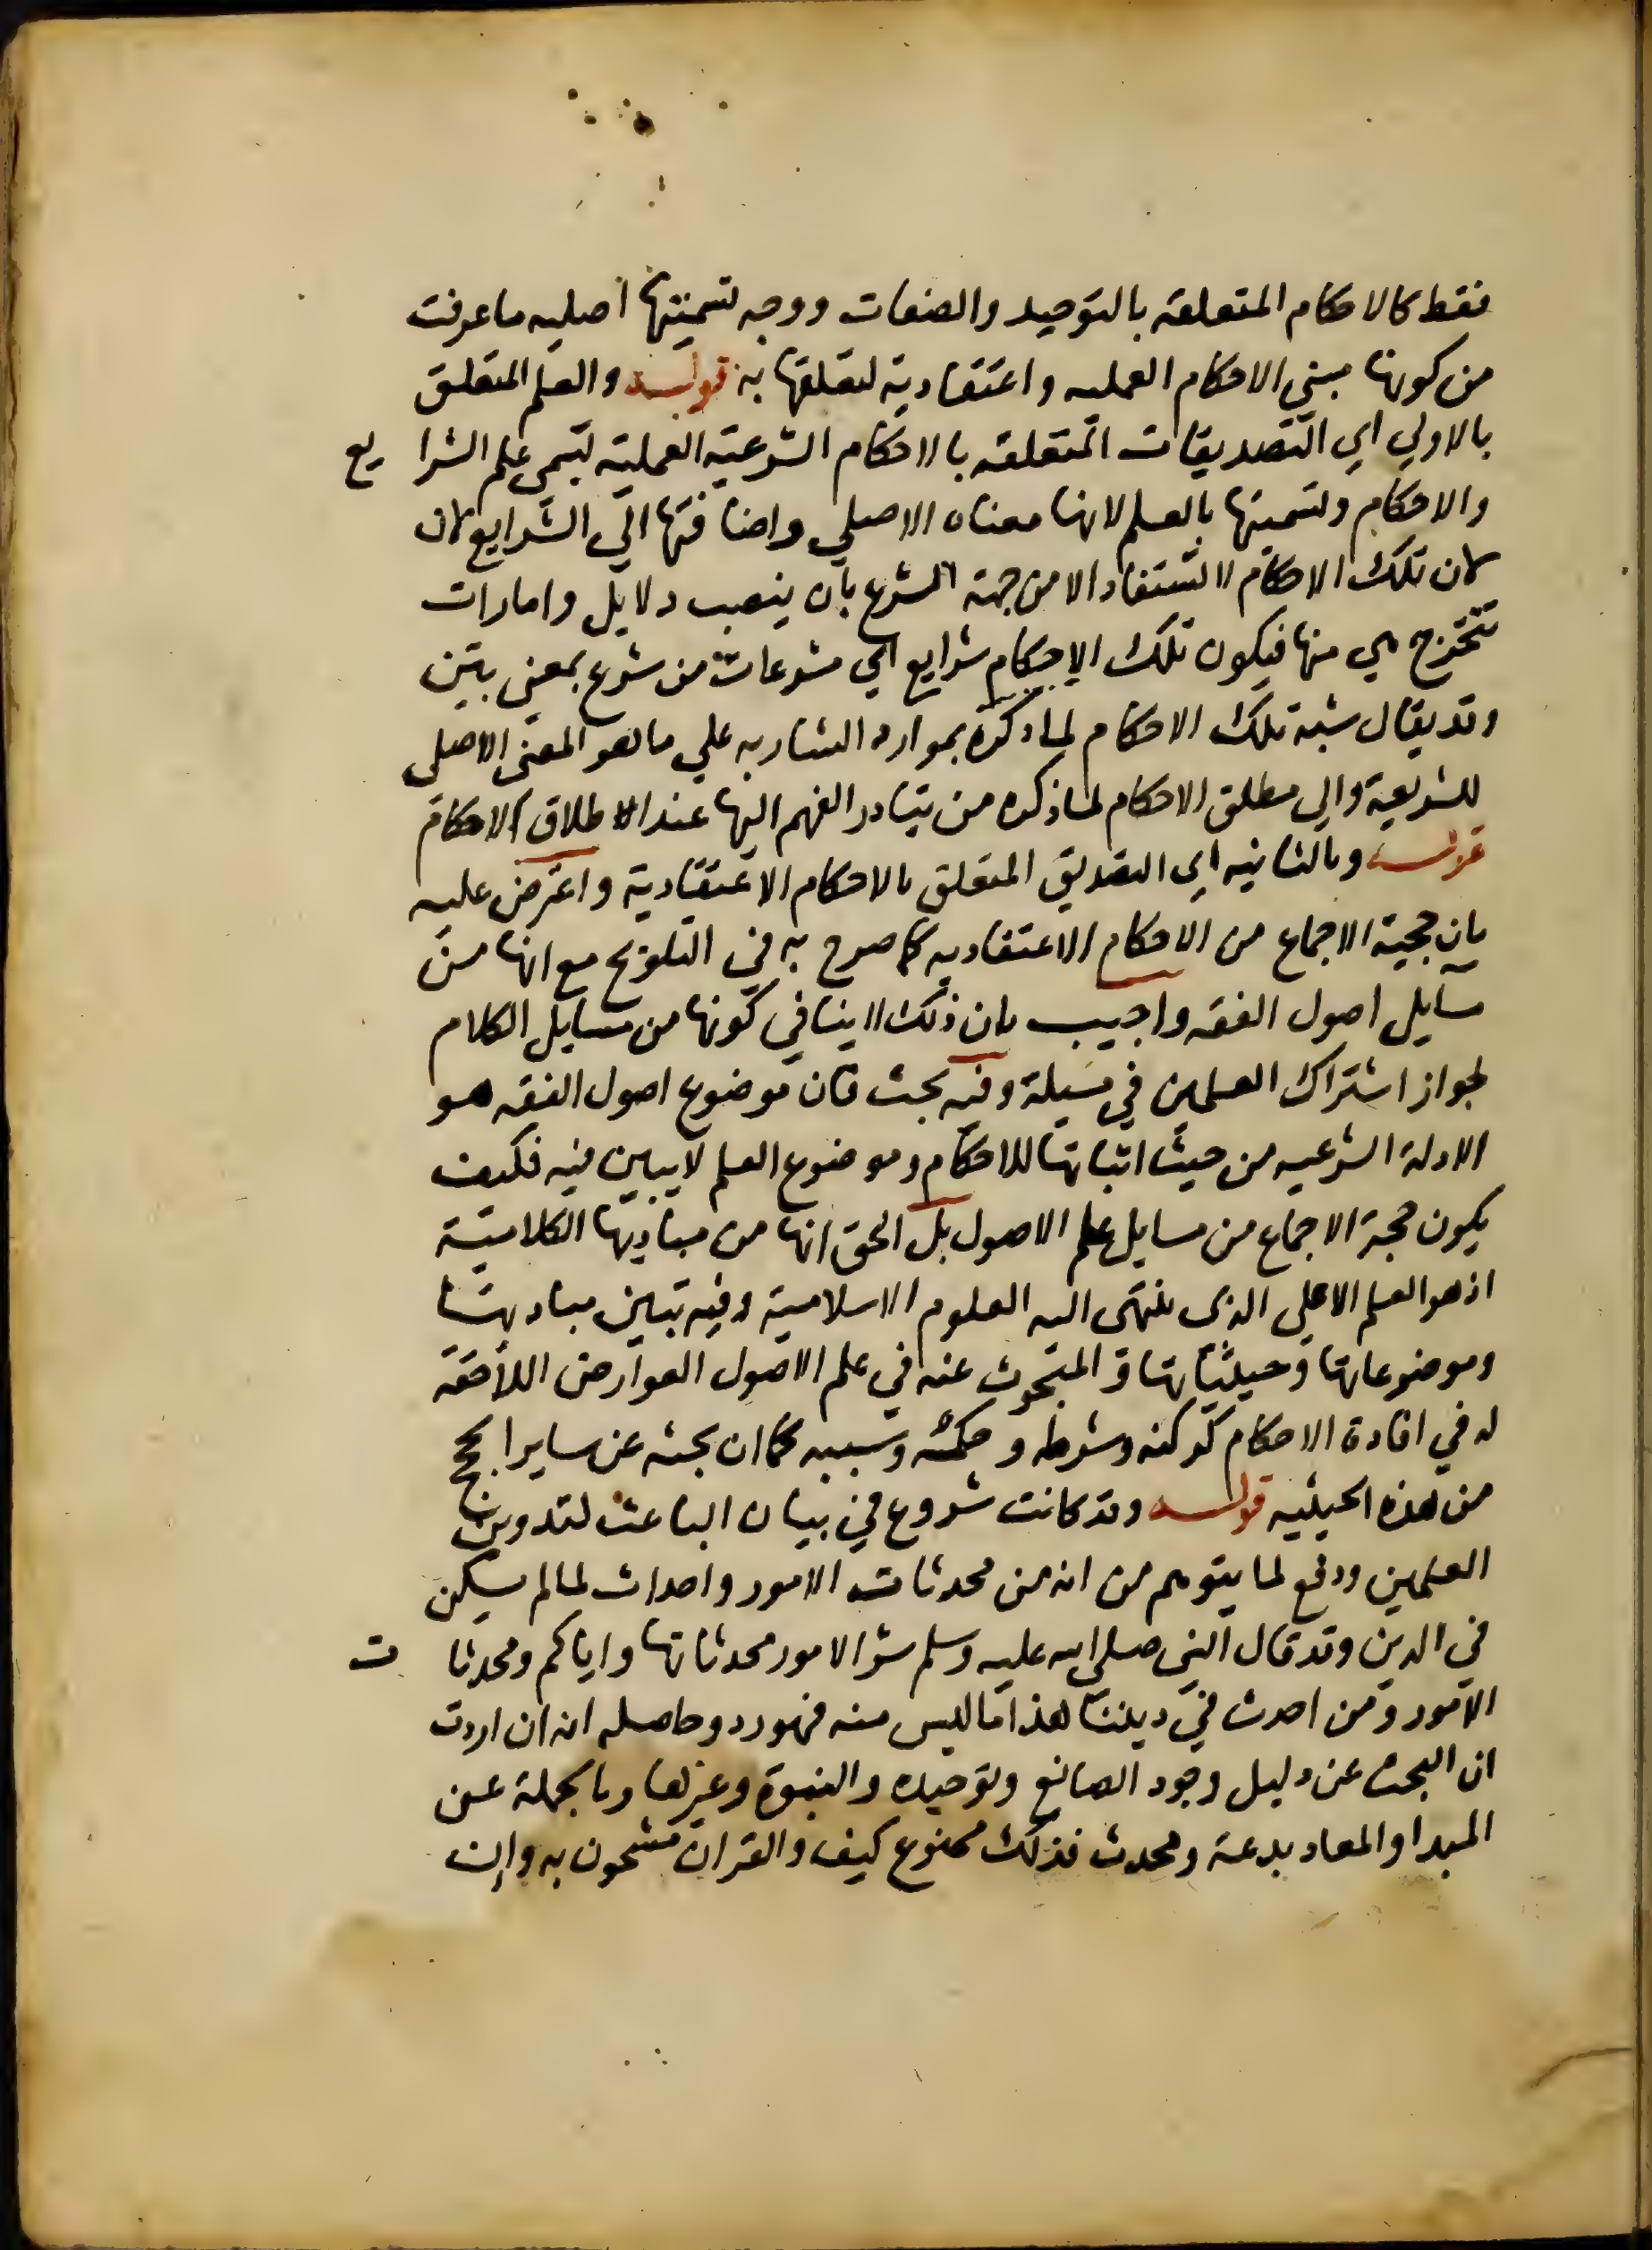 فقط كالاحكام المتعلقة بالتوحيد والصفات ووجه تسميتها اصليه ما عرفت
من كونها مبني الاحكام العمليه واعتقادية لتعلقها به قوله والعلم المتعلق
بالاولي اي التصديقات المتعلقة بالاحكام الشرعية العملية يسمي علم الشرا يع
والاحكام وتسميتها بالعلم لانها معناه الاصلي واضافتها الي الشرايع لان
لان تلك الاحكام لا تستفاد الا من جهة الشرع بان ينصب دلايل وامارات
تتخرج هي منها فيكون تلك الاحكام شرايع اي مشروعات من شرع بمعني بين
وقد يقال شبه تلك الاحكام لما ذكره بموارد الشاربه علي ما هو المعني الاصلي
للشريعة والي مطلق الاحكام لما ذكره من يتبادر الفهم اليها عند الاطلاق الاحكام
قوله وبالثانيه اي التصديق المتعلق بالاحكام الاعتقادية واعترض عليه
بان حجية الاجماع من الاحكام الاعتقاديه كما صرح به في التلويح مع انها من
مسايل اصول الفقه واجيب بان ذلك لا ينافي كونها من مسايل الكلام
لجواز اشتراك العلمين في مسيلة وفيه بحث فان موضوع اصول الفقه هو
الادلة الشرعيه من حيث اثباتها للاحكام وموضوع العلم لا يبين فيه فكيف
يكون حجية الاجماع من مسايل علم الاصول بل الحق انها من مباديها الكلامية
اذ هو العلم الاعلي الذي ينتهي اليه العلوم الاسلامية وفيه تبين مباديها
وموضوعاتها وحيثياتها و المبحوث عنه في علم الاصول العوارض اللاحقة
له في افادة الاحكام كركنه وشرطه وحكمه وسببه كما ان بحثه عن ساير الحجج
من هذه الحيثيه قوله وقد كانت شروع في بيان الباعث لتدوين
العلمين ودفع لما يتوهم من انه من محدثات الامور واحداث لما لم يكن
في الدين وقد قال النبي صلي الله عليه وسلم شر الامور محدثاتها واياكم ومحدثا ت
الامور ومن احدث في ديننا هذا ما ليس منه فهو رد وحاصله انه ان اردت
ان البحث عن دليل وجود الصانع وتوحيده والنبوة وغيرها وبالجملة عن
المبدا والمعاد بدعة ومحدث فذلك ممنوع كيف والقران مشحون به وان